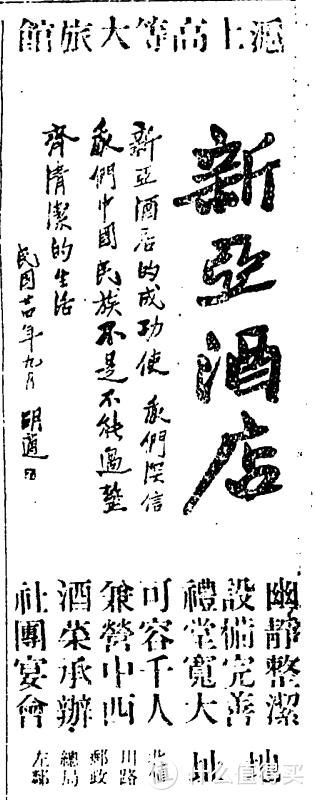 滬上高等大旅館
新亞酒店
新亞酒店的成功使我們深信
我們中國民族不是不能過整
齊清潔的生活
民国廿四年九月 胡適
幽靜整潔
設備完善
禮堂寬大
可容千人
兼營中西
酒菜承辦
社團宴會
地址
北四
川路
郵政
總局
左鄰
值 什么值得买